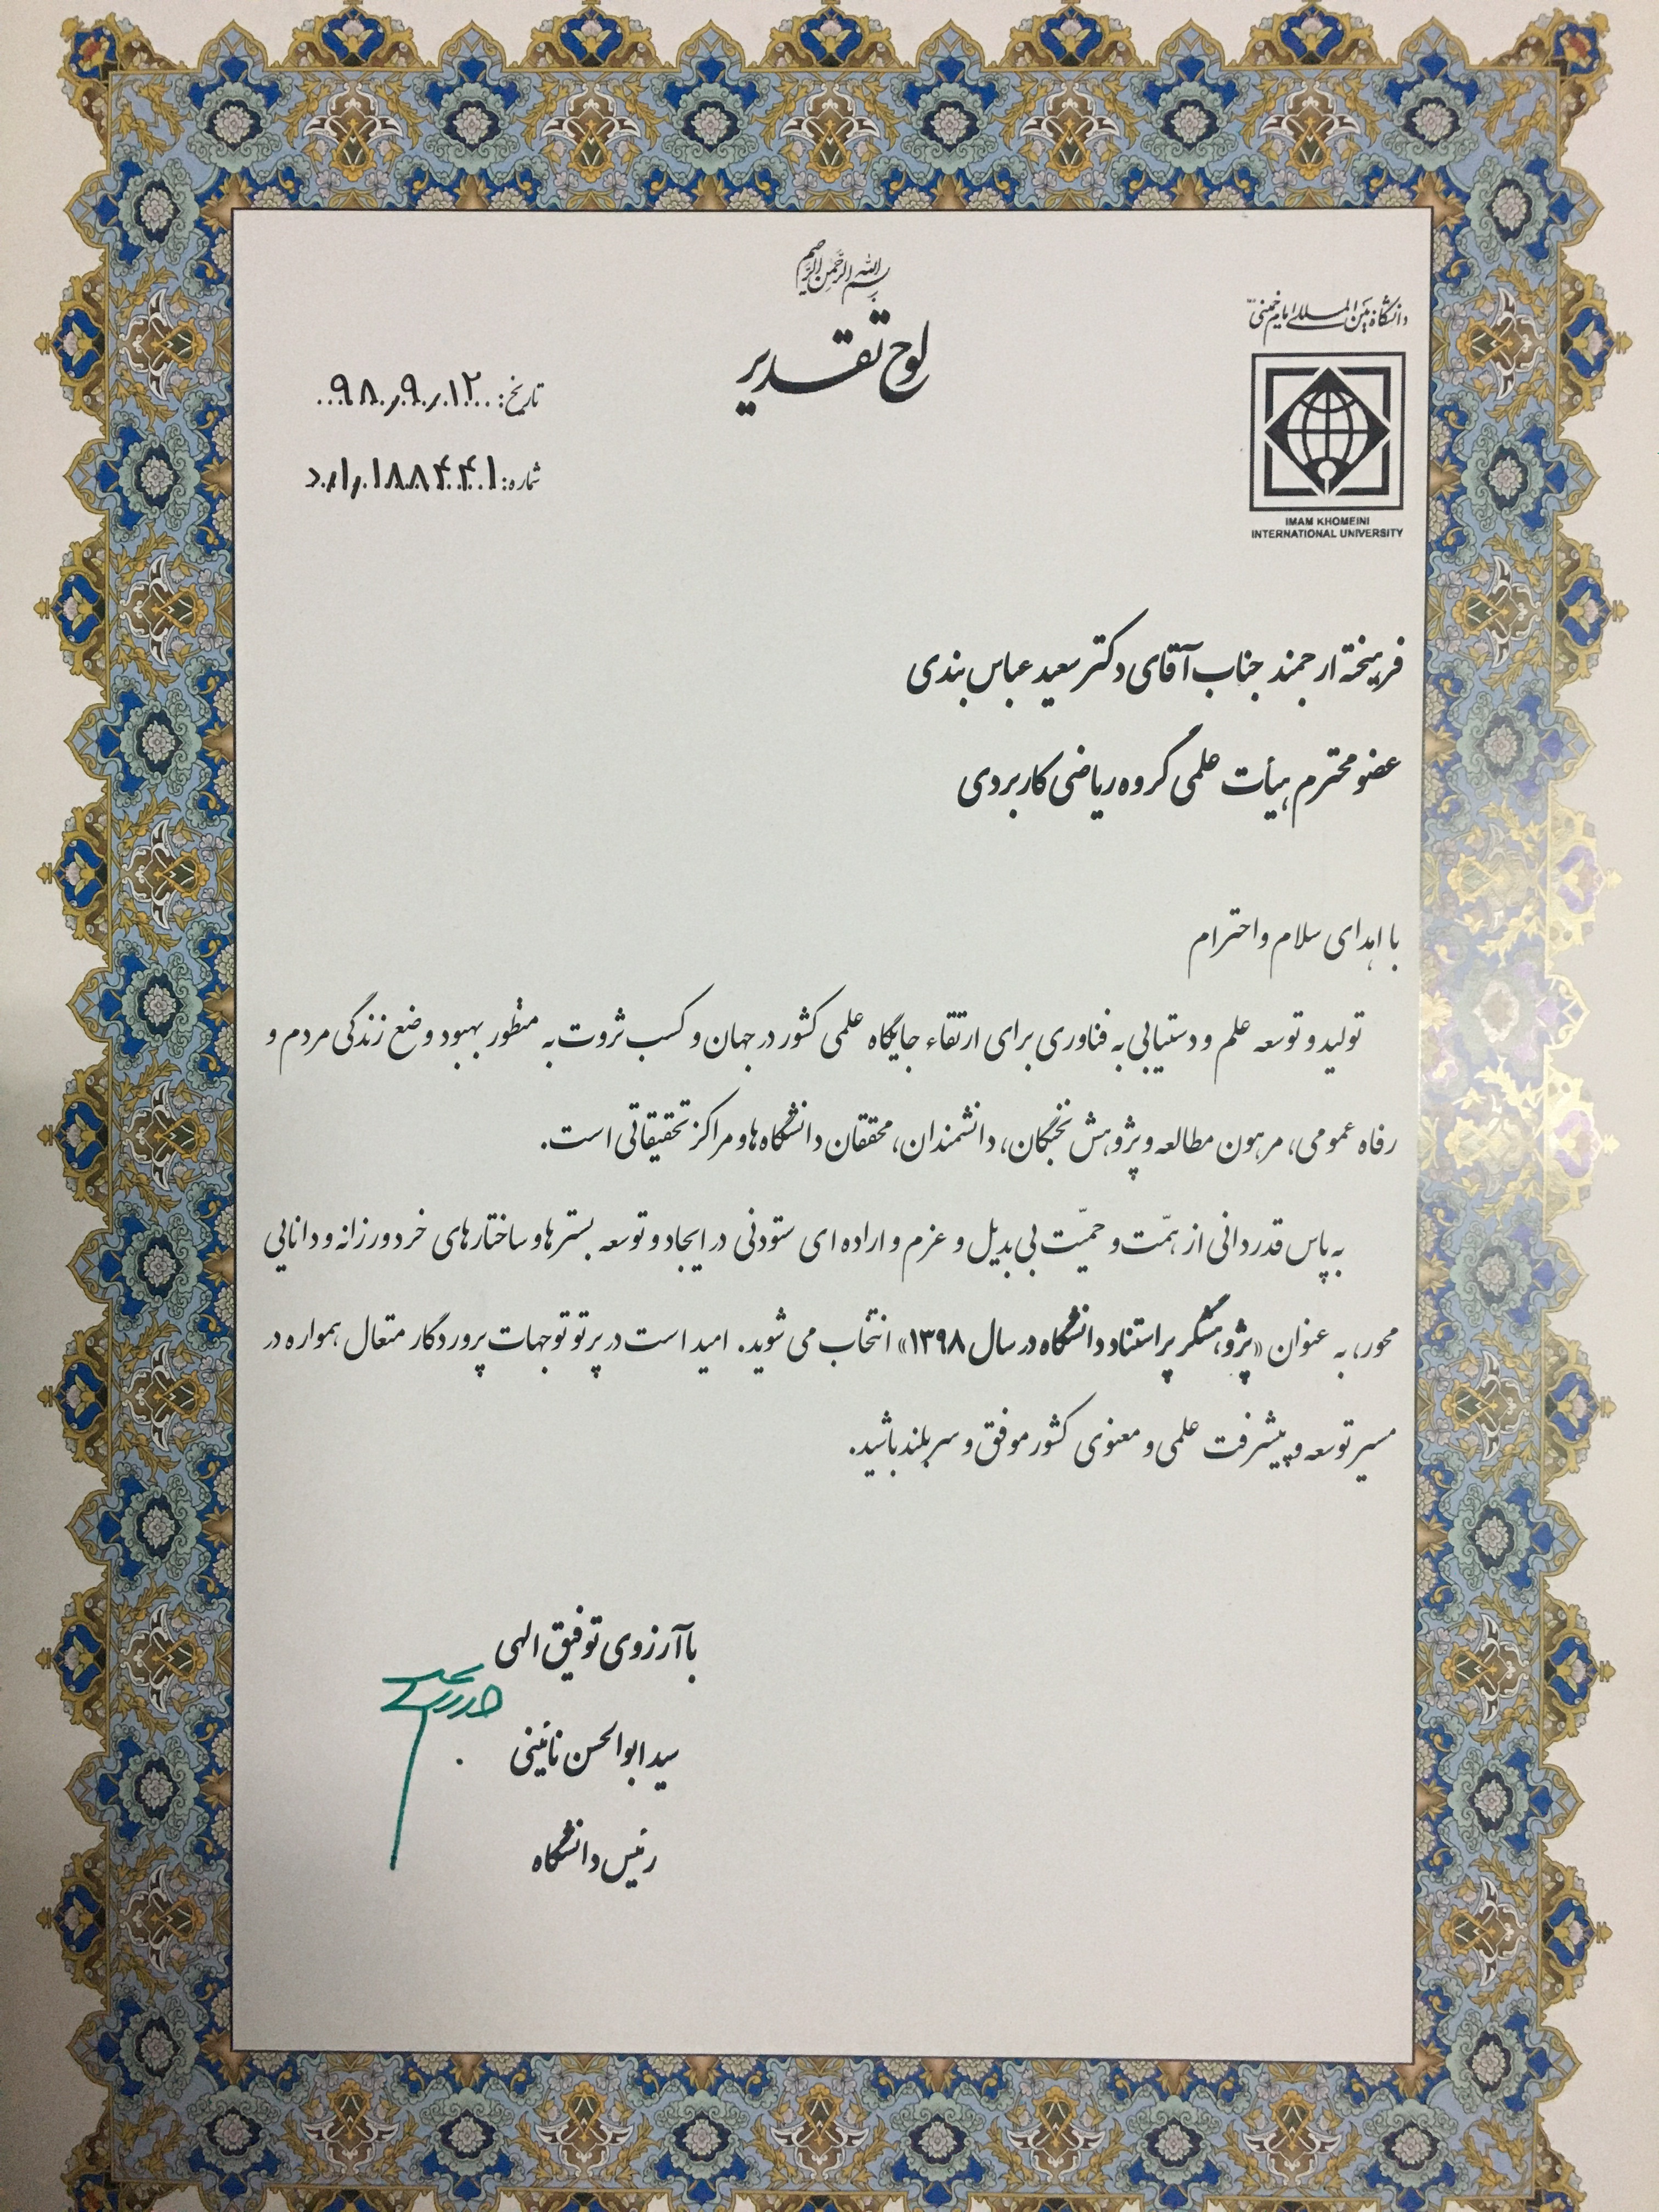 بسم الله الرحمن الرحیم
لوح تقدیر
دانشگاه بین المللی امام خمینی
IMAM KHOMEINI
INTERNATIONAL UNIVERSITY
تاریخ: ۹۸٫۹٫۱۲
شماره: ۱۸۸۴۴۱٫۱٫د
فرهیخته ارجمند جناب آقای دکتر سعید عباس بندی
عضو محترم هیأت علمی گروه ریاضی کاربردی
با اهدای سلام و احترام
تولید و توسعه علم و دستیابی به فناوری برای ارتقاء جایگاه علمی کشور در جهان و کسب ثروت به منظور بهبود وضع زندگی مردم و
رفاه عمومی، مرهون مطالعه و پژوهش نخبگان، دانشمندان، محققان دانشگاه ها و مراکز تحقیقاتی است.
به پاس قدردانی از همّت و حمیّت بی بدیل و عزم و اراده ای ستودنی در ایجاد و توسعه بسترها و ساختارهای خردورزانه و دانایی
محور، به عنوان «پژوهشگر پر استناد دانشگاه در سال ۱۳۹۸» انتخاب می شوید. امید است در پرتو توجهات پروردگار متعال همواره در
مسیر توسعه و پیشرفت علمی و معنوی کشور موفق و سربلند باشید.
با آرزوی توفیق الهی
سید ابوالحسن نائینی
رئیس دانشگاه